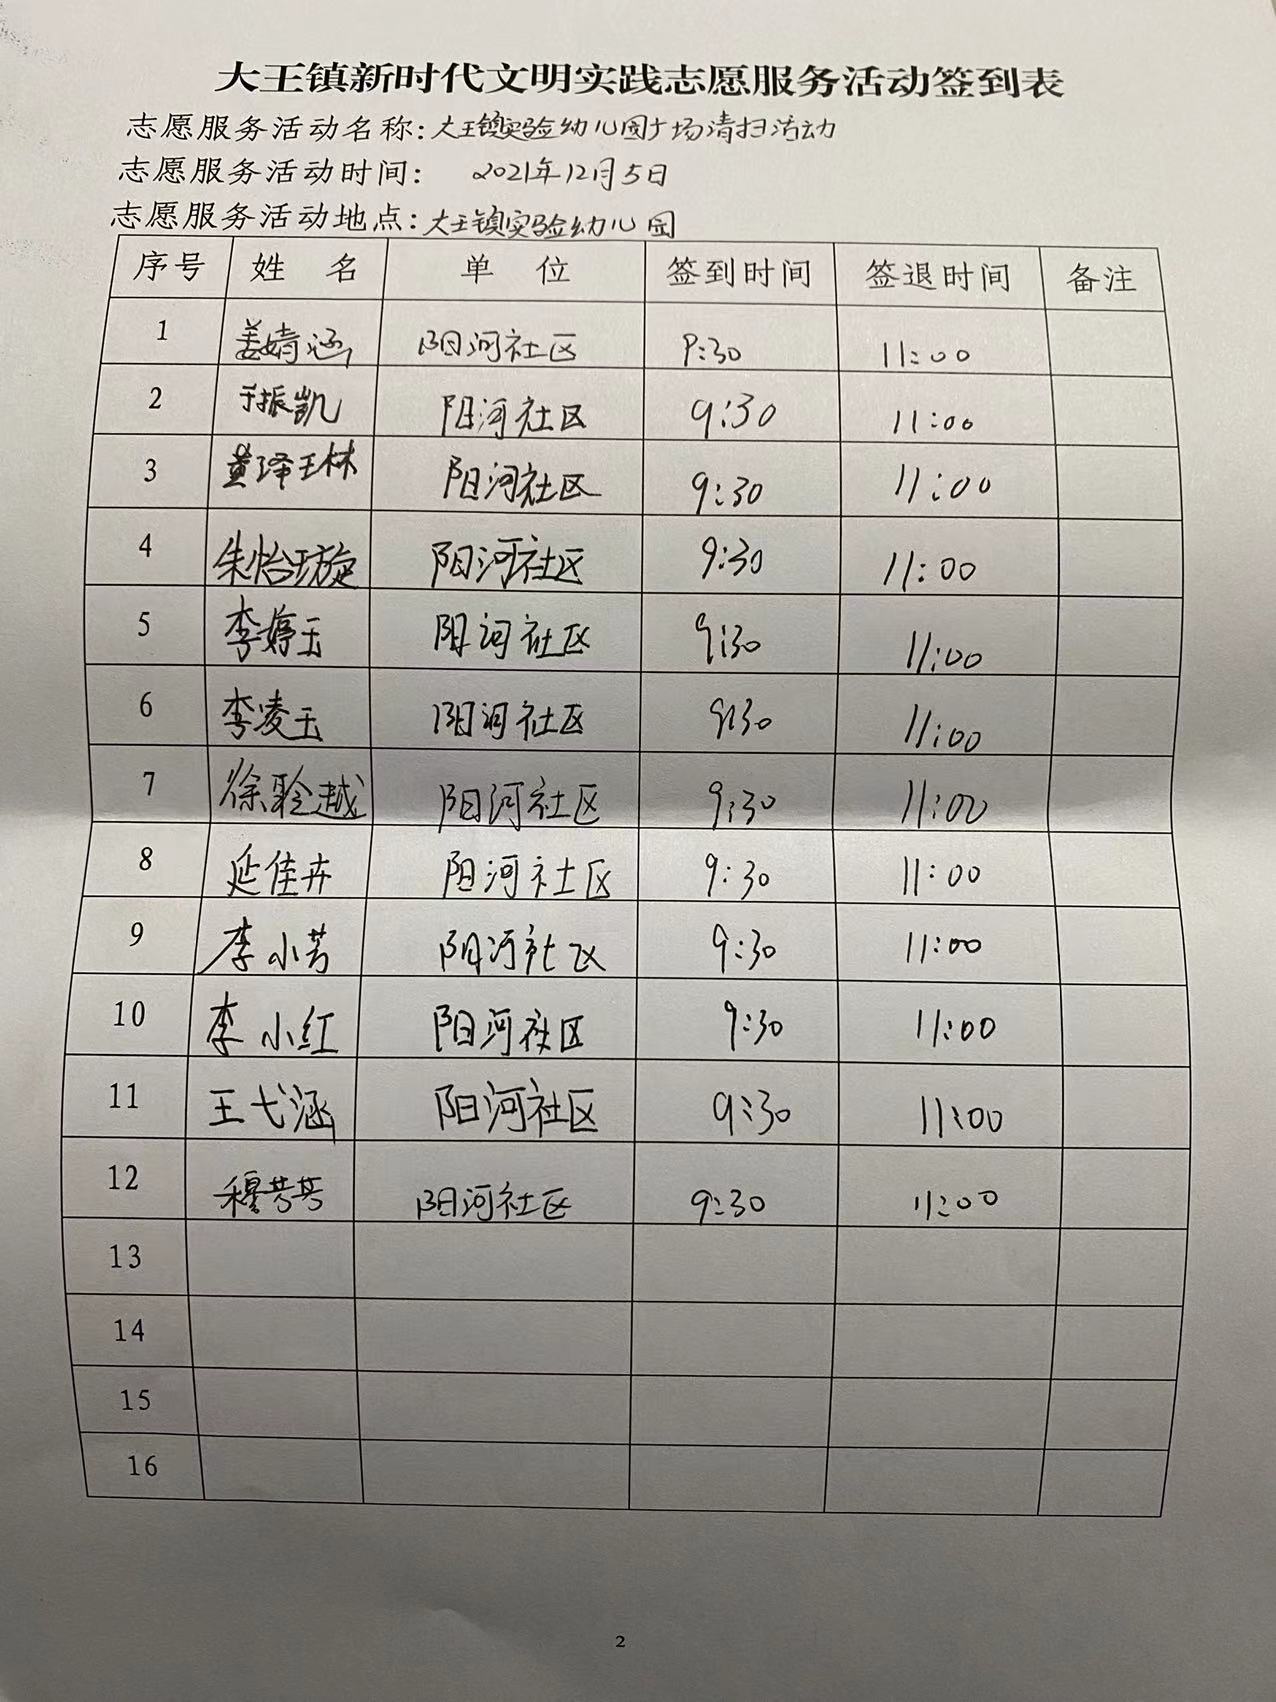 大王镇新时代文明实践志愿服务活动签到表
志愿服务活动名称:大王镇实验幼儿园广场清扫活动
志愿服务活动时间: 2021年12月5日
志愿服务活动地点:大王镇实验幼儿园
序号 姓 名 单 位 签到时间 签退时间 备注
1 姜婧涵 阳河社区 9:30 11:00
2 于振凯 阳河社区 9:30 11:00
3 黄泽琳 阳河社区 9:30 11:00
4 朱怡璇 阳河社区 9:30 11:00
5 李婷玉 阳河社区 9:30 11:00
6 李凌玉 阳河社区 9:30 11:00
7 徐聆越 阳河社区 9:30 11:00
8 延佳卉 阳河社区 9:30 11:00
9 李小芳 阳河社区 9:30 11:00
10 李小红 阳河社区 9:30 11:00
11 王弋涵 阳河社区 9:30 11:00
12 穆芳芳 阳河社区 9:30 11:00
13
14
15
16
2